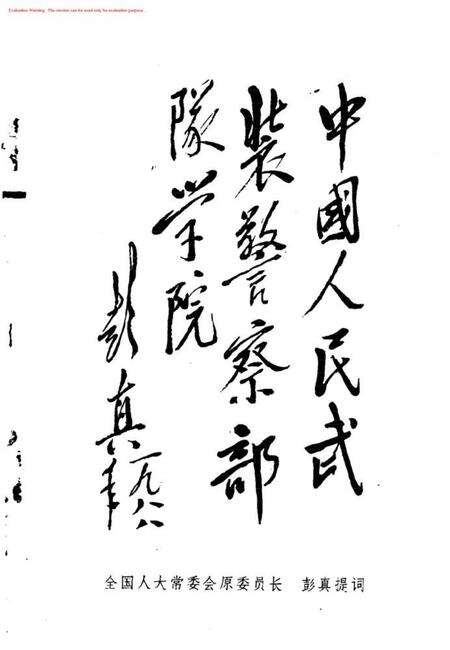 Evaluation Warning : The version can be used only for evaluation purpose...
中國人民武
裝警察部
隊学院
彭真
一九八八
年
全国人大常委会原委员长 彭真提词